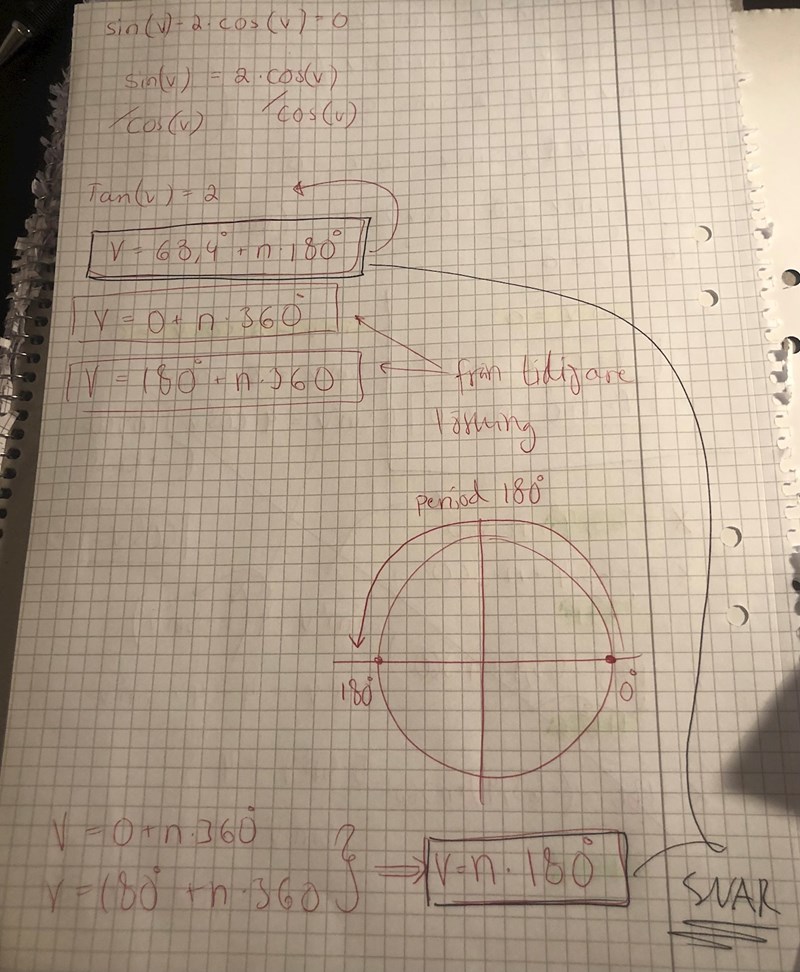 sin(v)-2·cos(v)=0
sin(v) = 2·cos(v)
/cos(v) /cos(v)
Tan(v) = 2
V = 63,4° + n·180°
V = 0 + n·360°
V = 180° + n·360
från tidigare
lösning
period 180°
180° 0°
V = 0+n·360°
V = 180° + n·360 } ⇒ V=n·180°
SVAR